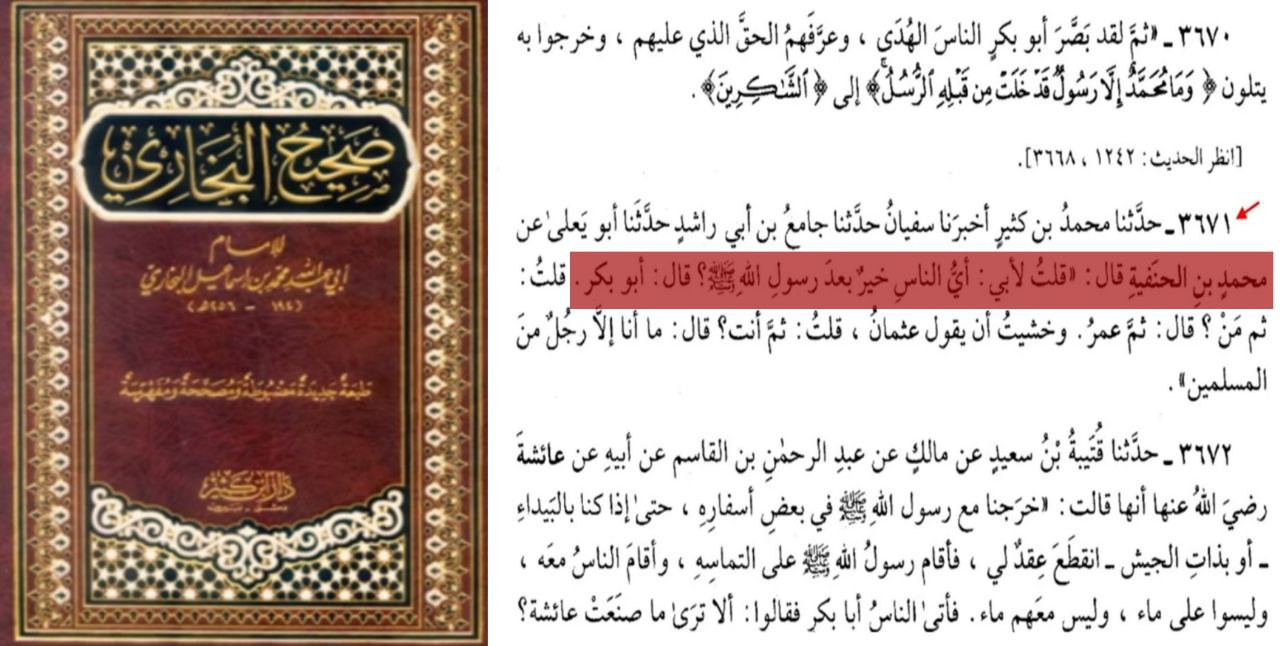 صَحِيحُ البُخَارِي
للإمام
أبي عبد الله محمد بن إسماعيل البخاري
(١٩٤ - ٢٥٦هـ)
طبعة جديدة مضبوطة ومصححة ومفهرسة
دار ابن كثير
دمشق - بيروت
٣٦٧٠ ـ «ثمَّ لقد بَصَّرَ أبو بكرٍ الناسَ الهُدَى ، وعرَّفَهمُ الحقَّ الذي عليهم ، وخرجوا به
يتلون ﴿ وَمَا مُحَمَّدٌ إِلَّا رَسُولٌ قَدْ خَلَتْ مِن قَبْلِهِ ٱلرُّسُلُ ﴾ إلى ﴿ ٱلشَّٰكِرِينَ ﴾ .
[انظر الحديث: ١٢٤٢ ، ٣٦٦٨].
٣٦٧١ ـ حدَّثنا محمدُ بن كثيرٍ أخبرَنا سفيانُ حدَّثنا جامعُ بن أبي راشدٍ حدَّثَنا أبو يَعلىٰ عن
محمدِ بنِ الحنَفيةِ قال: «قلتُ لأبي: أيُّ الناسِ خيرٌ بعدَ رسولِ اللهِ ﷺ؟ قال: أبو بكر. قلتُ:
ثم مَنْ ؟ قال: ثمَّ عمرُ. وخشيتُ أن يقول عثمانُ ، قلتُ: ثمَّ أنت؟ قال: ما أنا إلَّا رجُلٌ منَ
المسلمين».
٣٦٧٢ ـ حدَّثنا قُتَيبةُ بْنُ سعيدٍ عن مالكٍ عن عبدِ الرحمٰنِ بن القاسم عن أبيهِ عن عائشةَ
رضيَ اللهُ عنها أنها قالت: «خرَجنا مع رسول اللهِ ﷺ في بعضِ أسفارِهِ ، حتىٰ إذا كنا بالبَيداءِ
ـ أو بذاتِ الجيش ـ انقطَعَ عِقدٌ لي ، فأقام رسولُ اللهِ ﷺ على التماسِهِ ، وأقامَ الناسُ معَه ،
وليسوا على ماء ، وليس معَهم ماء. فأتىٰ الناسُ أبا بكر فقالوا: ألا ترَىٰ ما صنَعَتْ عائشة؟